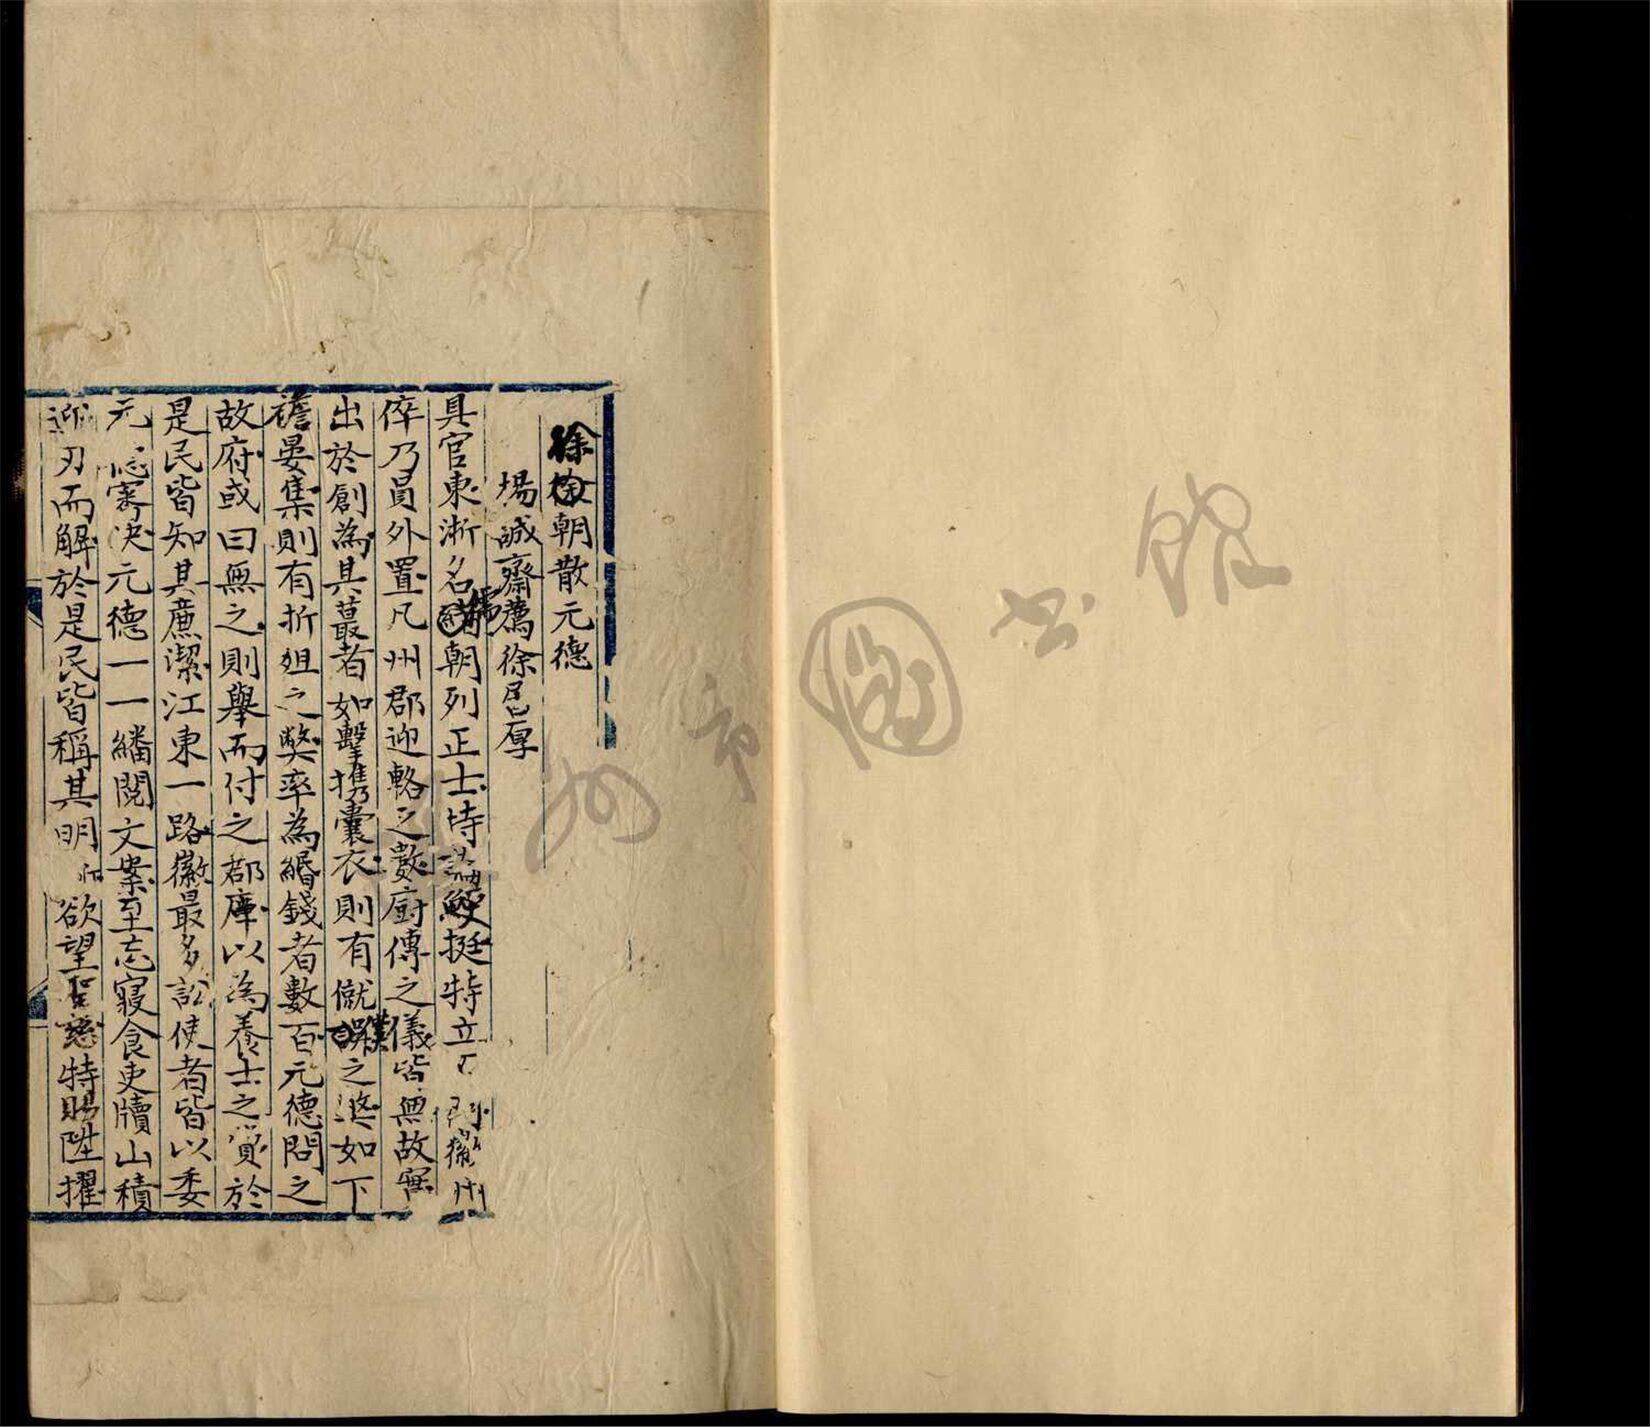 徐朝散元德
塲誠齋薦徐居厚
具官東浙名儒朝列正士持論鯁挺特立 徽州
倅乃員外置凡州郡迎輅之數廚傳之儀皆無故寔
出於創為其蕞者如擊携囊衣則有僦僕之遞如下
襜晏集則有折俎之弊率為緡錢者數百元德問之
故府或曰無之則舉而付之郡庫以為養士之資於
是民皆知其廉潔江東一路徽最多訟使者皆以委
元 審决元德一一繙閱文案至忘寢食吏牘山積
迎刃而解於是民皆稱其明 欲望聖慈特賜陞擢
州市圖書館